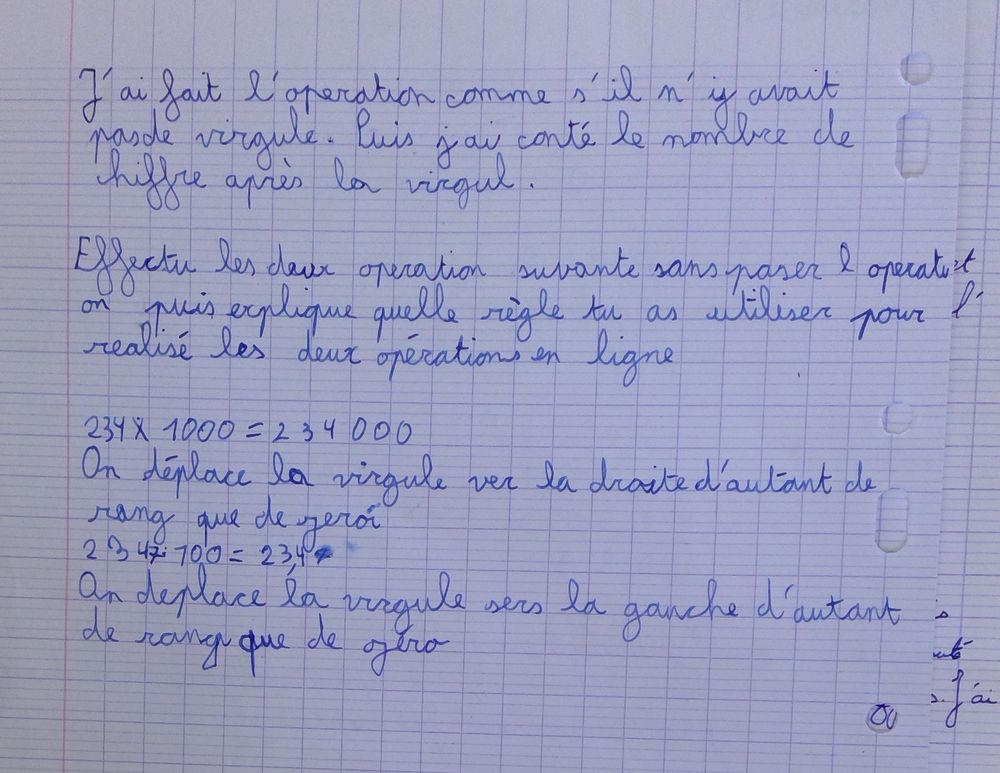 J'ai fait l'operation comme s'il n'y avait
pas de virgule. Puis j'ai conté le nombre de
chiffre après la virgul.
Effectu les deux operation suivante sans paser l operati
on puis explique quelle règle tu as utiliser pour l'
realisé les deux opérations en ligne
234 x 1000 = 234 000
On déplace la virgule ver la droite d'autant de
rang que de zeroi
2347÷100 = 23,4
On deplace la virgule vers la gauche d'autant
de rang que de zéro
s. J'ai